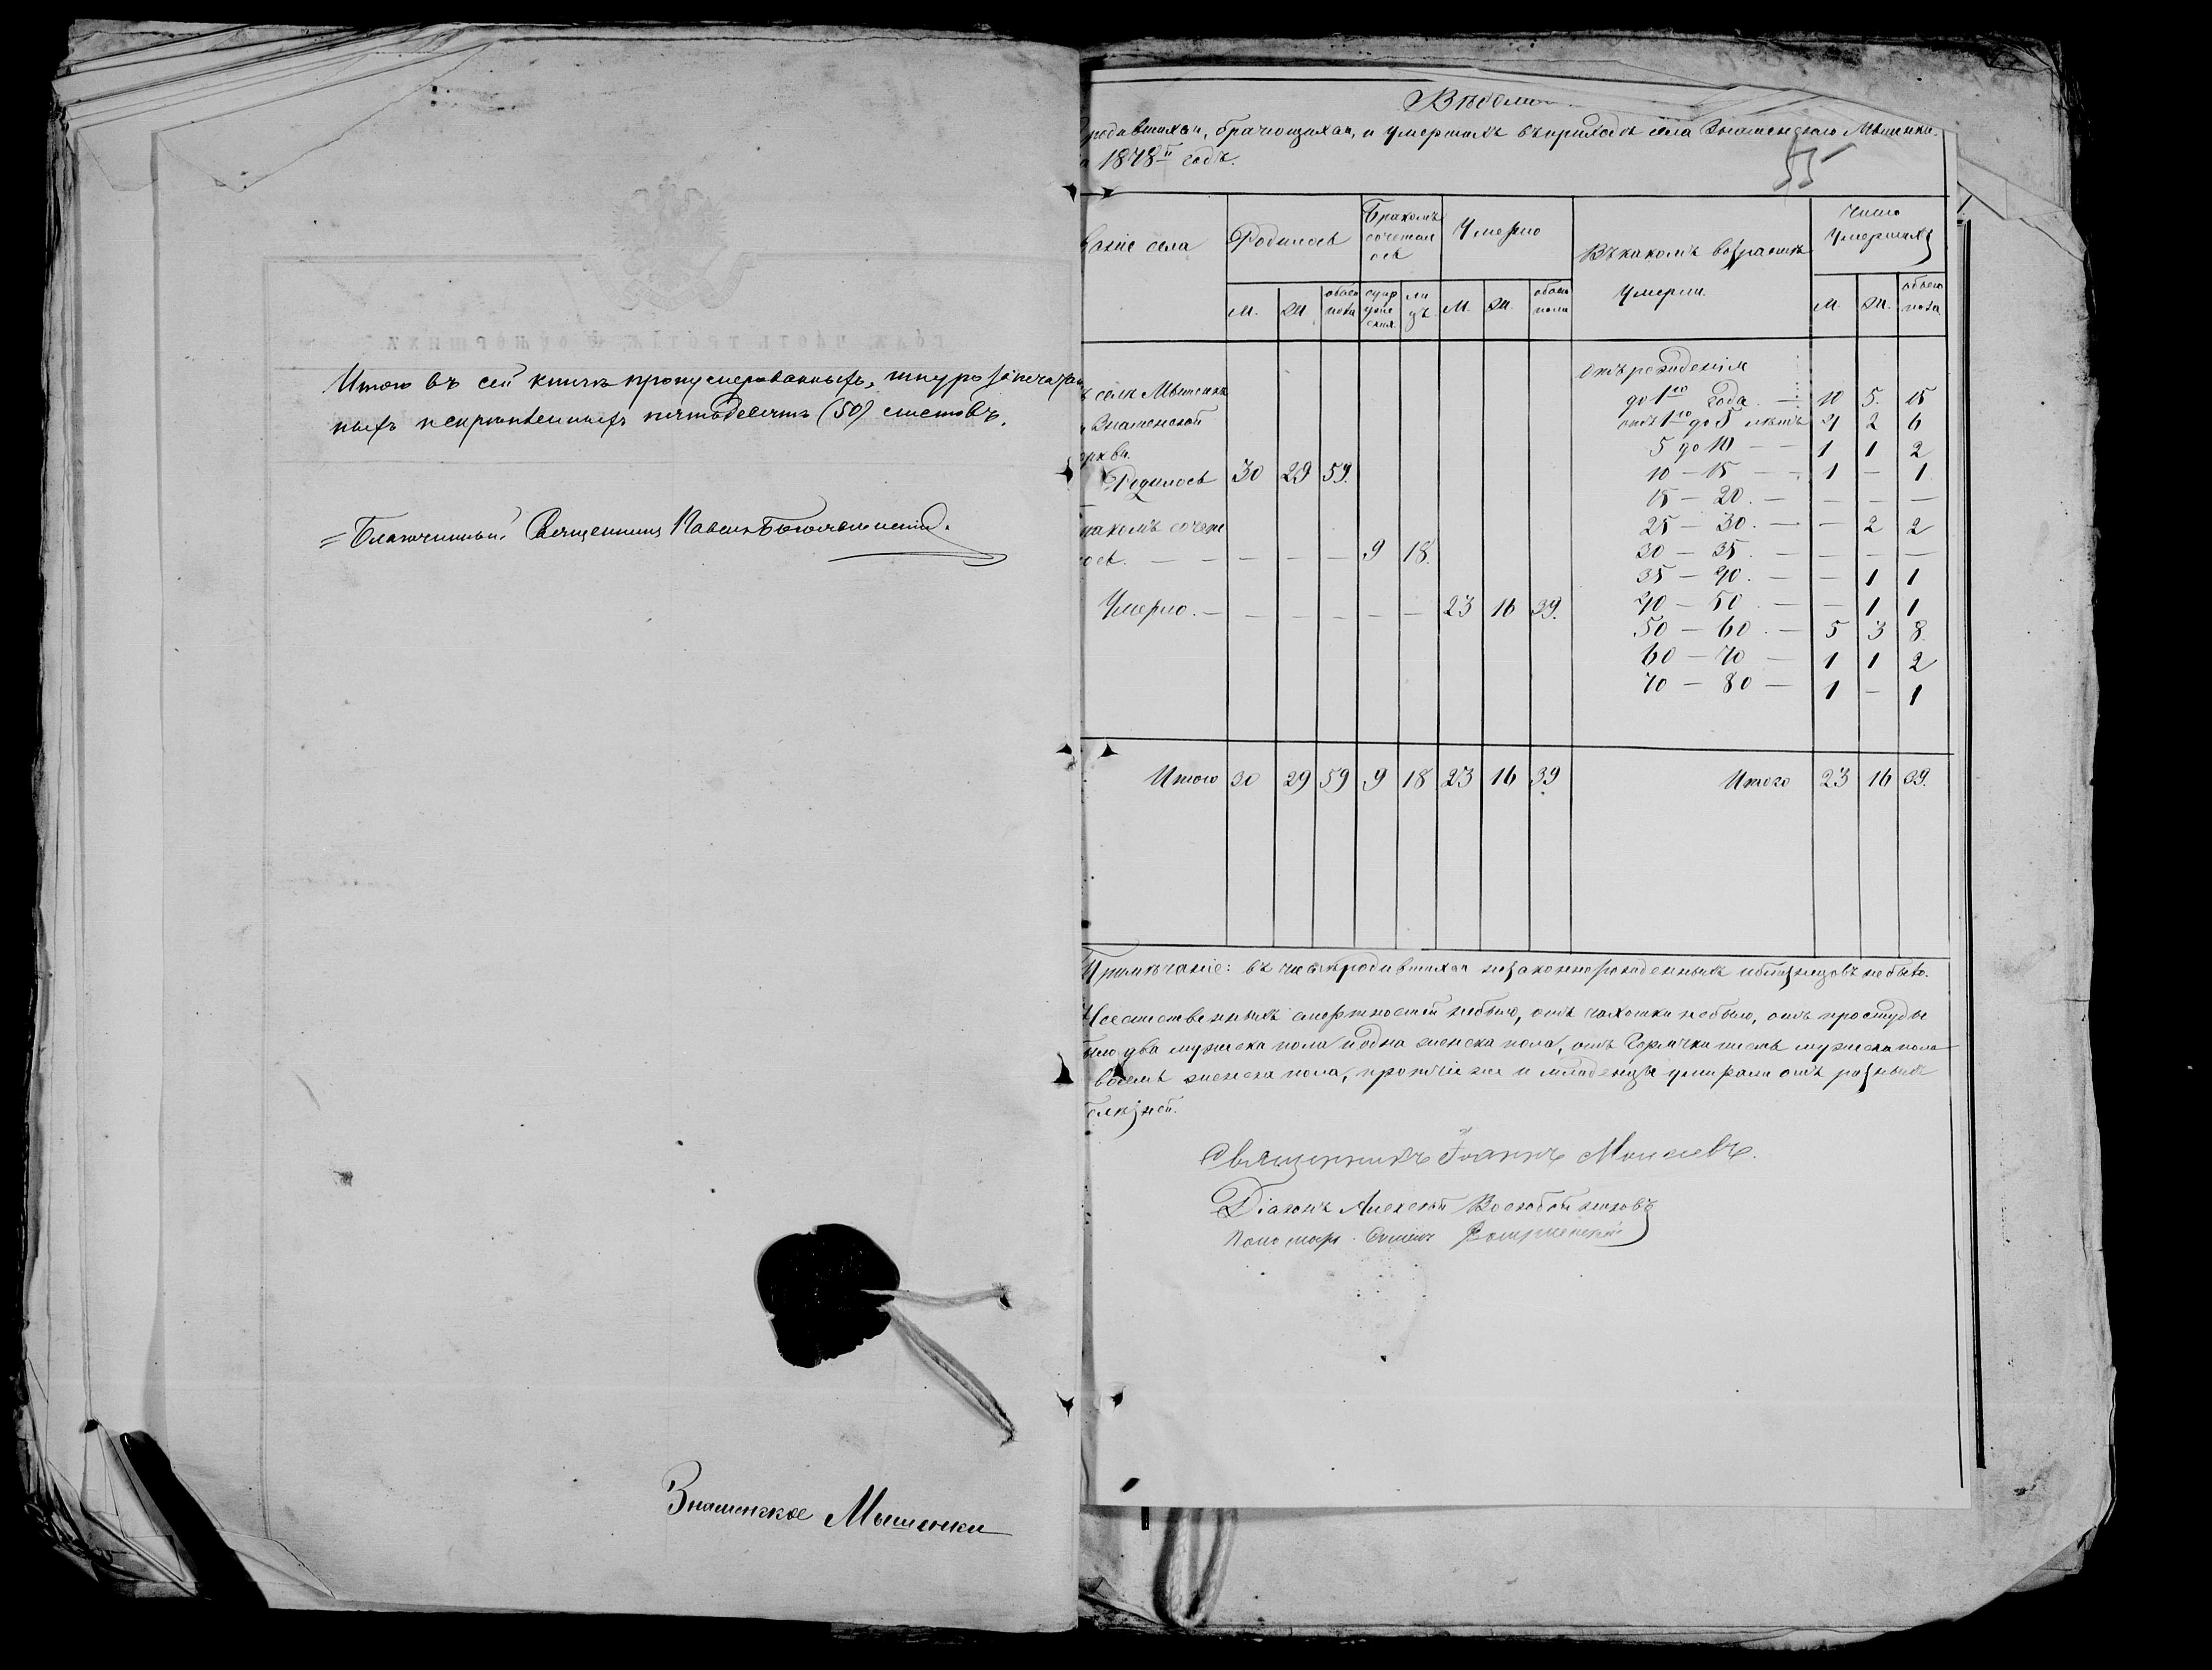 Итого въ сей книгѣ пронумерованныхъ, шнурозапечатан
ныхъ и скрѣпленныхъ пятьдесятъ (50) листовъ.
Благочинный Священникъ Павелъ
Знаменское Мышенки
Вѣдомо
родившихся, брачющихся, и умершихъ въ приходѣ села Знаменскаго Мышенки.
1878й годъ.
55
ваніе села
Родилось
Бракомъ сочетал ось
Умерло
Въ какомъ возрастѣ умерли.
Число Умершихъ
М. Ж обоего пола супр уже скія ли цъ М. Ж. обоего пола М. Ж. обоего пола
селѣ Мышенкѣ
Знаменской
ркви.
Родилось 30 29 59.
ракомъ сочета
ось. — — — — — 9 18.
Умерло. — — — — — — 23 16 39.
Отъ рожденія
до 1го года. — 10 5. 15
отъ 1го до 5 лѣтъ 4 2 6
5 до 10 — — 1 1 2
10 — 15 — — 1 — 1
15 — 20. — — — —
25 — 30. — — 2 2
30 — 35. — — — —
35 — 40. — — 1 1
40 — 50. — — 1 1
50 — 60. — 5 3 8.
60 — 70 — 1 1 2
70 — 80 — 1 — 1
Итого 30 29 59 9 18 23 16 39 Итого 23 16 39.
Примѣчаніе: въ числѣ родившихся незаконнорожденныхъ и близнецовъ не было.
Неестественныхъ смертностей небыло, отъ чахотки небыло, отъ простуды
было два мужеска пола и одна женска пола, отъ Горячки шесть мужеска пола
восемь женска пола, протчіе же и младенцы умирали отъ разныхъ
болѣзней.
Священникъ Іоаннъ Моисеевъ.
Діаконъ Алексей
Пономарь